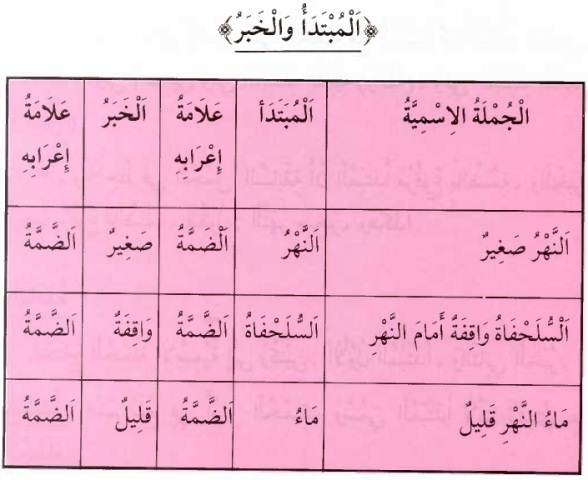 ﴿اَلْمُبْتَدَأُ وَالْخَبَرُ﴾
الْجُمْلَةُ الِاسْمِيَّةُ اَلْمُبَتَدَأ عَلَامَةُ إِعْرَابِهِ اَلْخَبَرُ عَلَامَةُ إِعْرَابِهِ
اَلنَّهْرُ صَغِيرٌ اَلنَّهْرُ اَلْضَمَّةُ صَغِيرٌ اَلضَّمَّةُ
اَلسُّلَحْفَاةُ وَاقِفَةٌ أَمَامَ النَّهْرِ اَلسُّلَحْفَاةُ اَلضَّمَّةُ وَاقِفَةٌ اَلضَّمَّةُ
مَاءُ النَّهْرِ قَلِيلٌ مَاءُ اَلضَّمَّةُ قَلِيلٌ اَلضَّمَّةُ